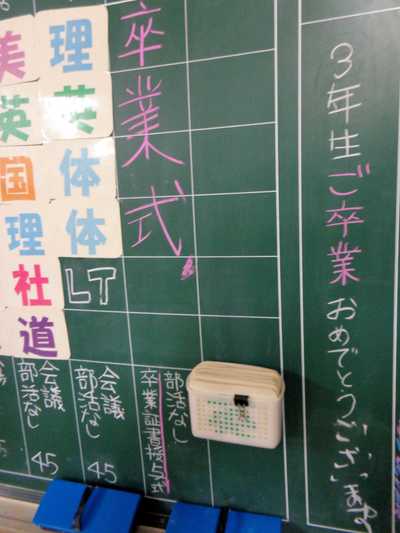 3年生ご卒業おめでとうございます
卒業式
部活なし
卒業証書授与式
理
英
体
体
LT
会議
部活なし
45
美
英
国
理
社
道
会議
部活なし
45